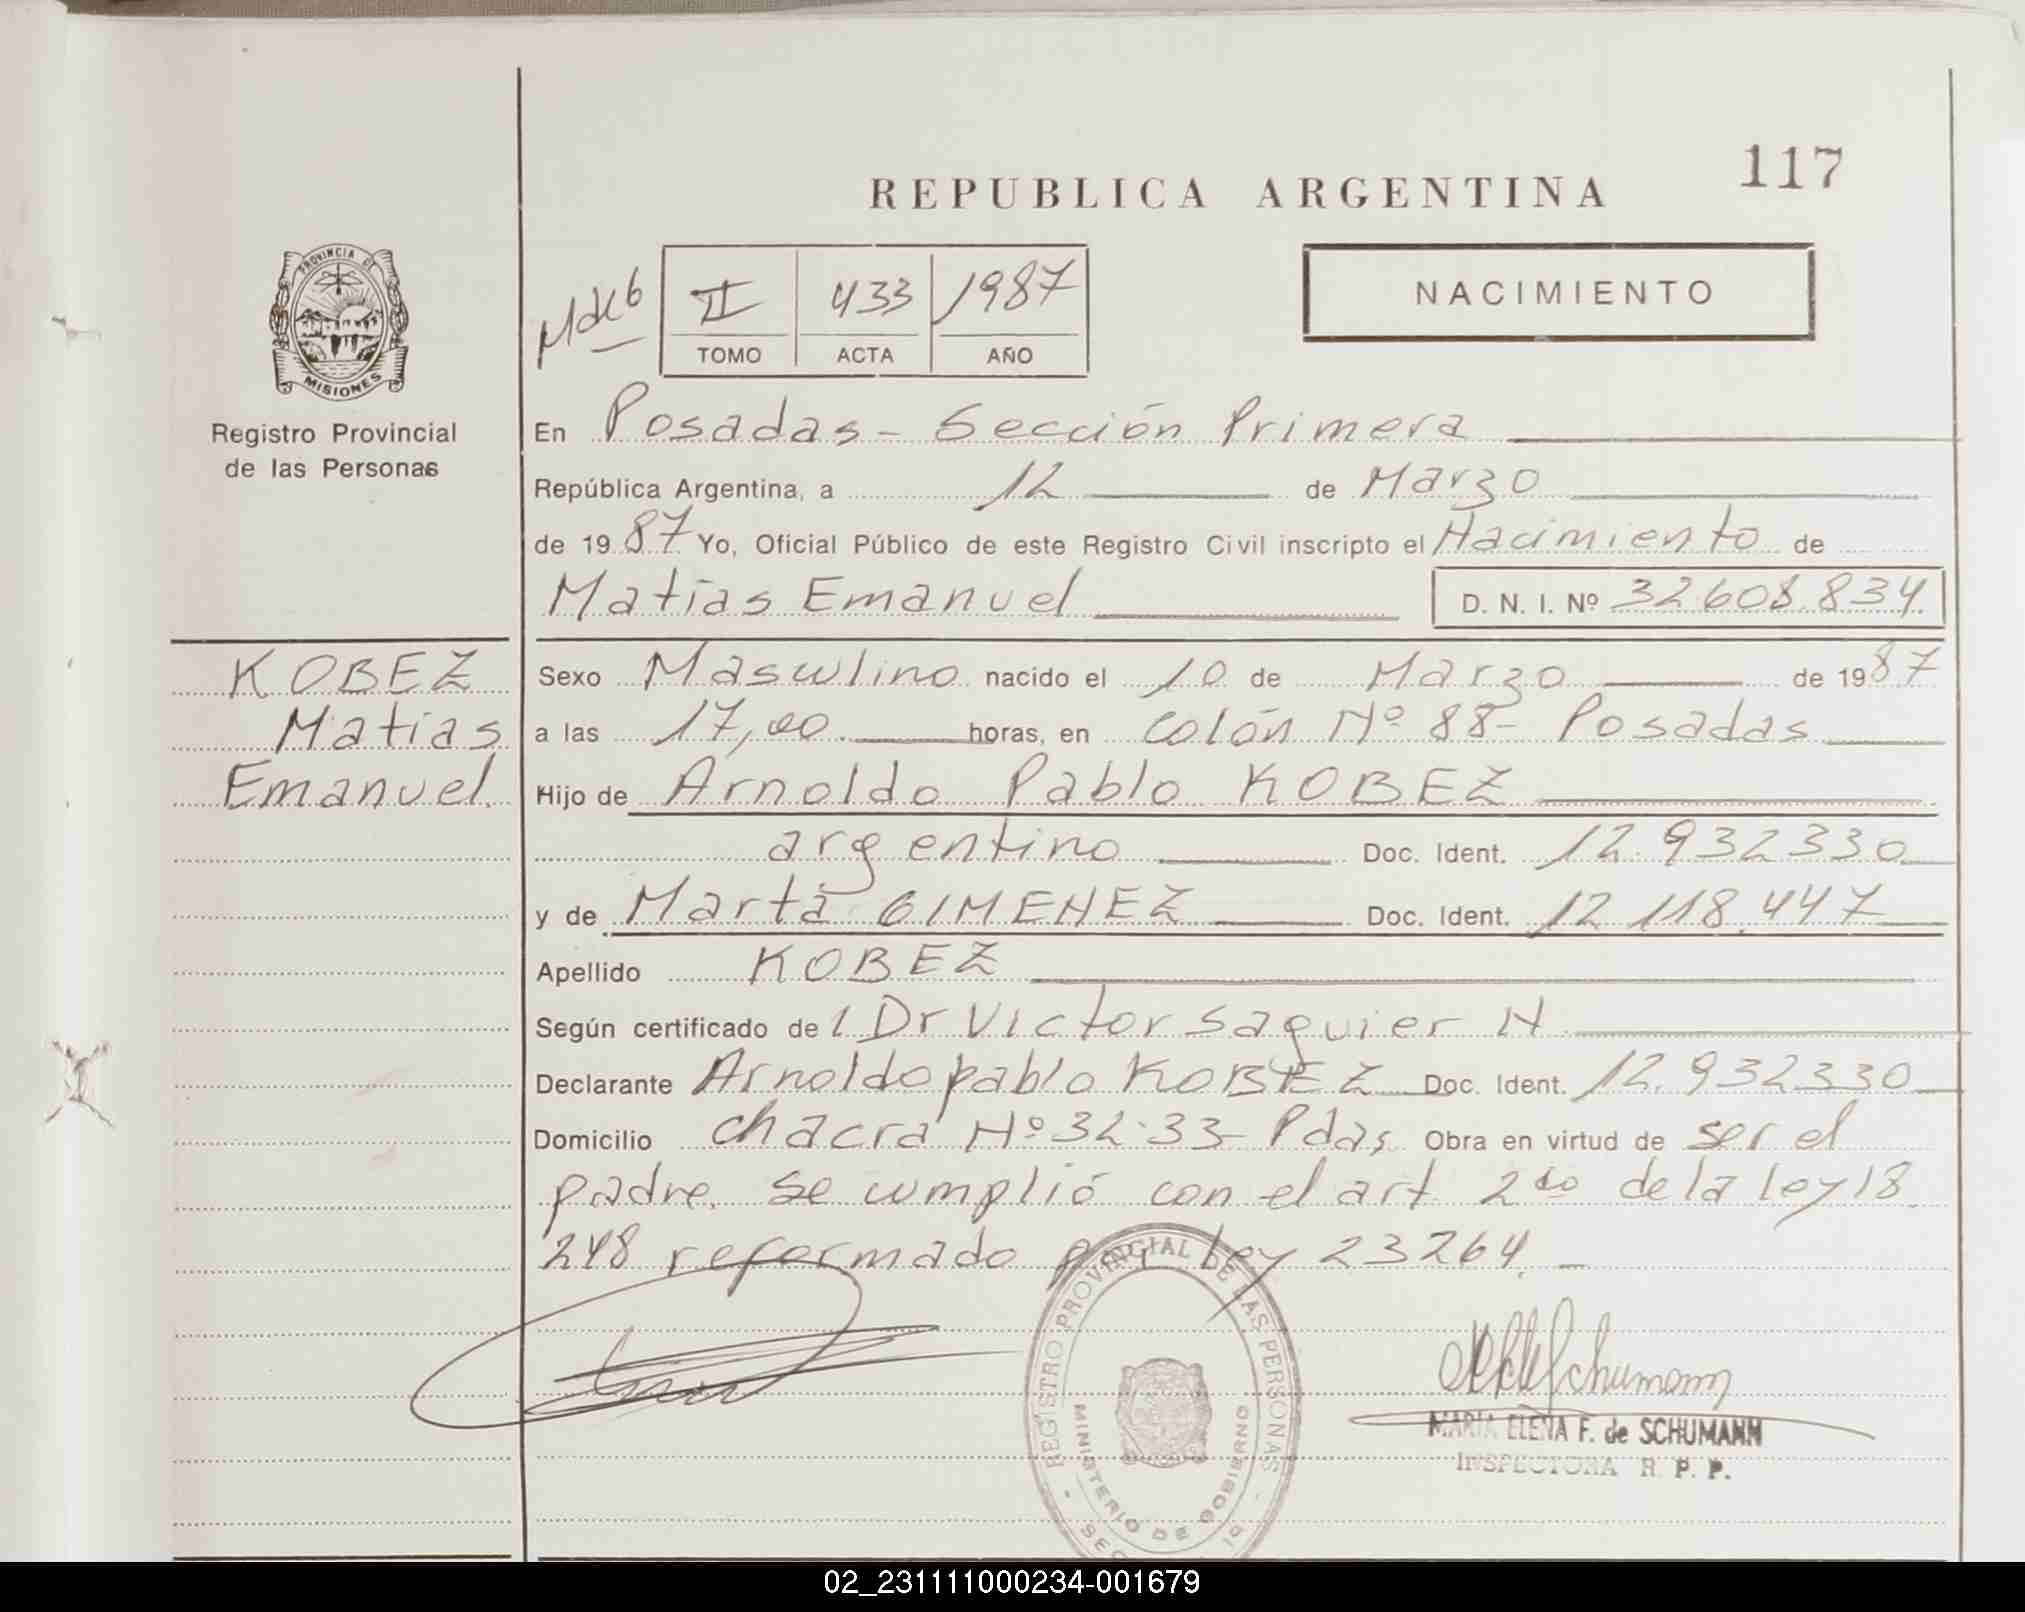 117
REPUBLICA ARGENTINA
NACIMIENTO
II 433 1987
TOMO ACTA AÑO
PROVINCIA DE
MISIONES
Registro Provincial
de las Personas
En Posadas - Sección Primera
República Argentina, a 12 de Marzo
de 1987 Yo, Oficial Público de este Registro Civil inscripto el Nacimiento de
Matias Emanuel D. N. I. Nº 32.608.834
KOBEZ
Matias
Emanuel
Sexo Masculino nacido el 10 de Marzo de 1987
a las 17,00 horas, en Colón Nº 88 - Posadas
Hijo de Arnoldo Pablo KOBEZ
argentino Doc. Ident. 12.932330
y de Marta GIMENEZ Doc. Ident. 12 118.447
Apellido KOBEZ
Según certificado del Dr Victor Saguier N
Declarante Arnoldo pablo KOBEZ Doc. Ident. 12.932330
Domicilio chacra Nº 32-33 - Pdas, Obra en virtud de ser el
padre. Se cumplió con el art 2do de la ley 18
248 reformado por ley 23264. -
REGISTRO PROVINCIAL DE LAS PERSONAS
MINISTERIO DE GOBIERNO
Schumann
MARIA ELENA F. de SCHUMANN
INSPECTORA R. P. P.
02_231111000234-001679